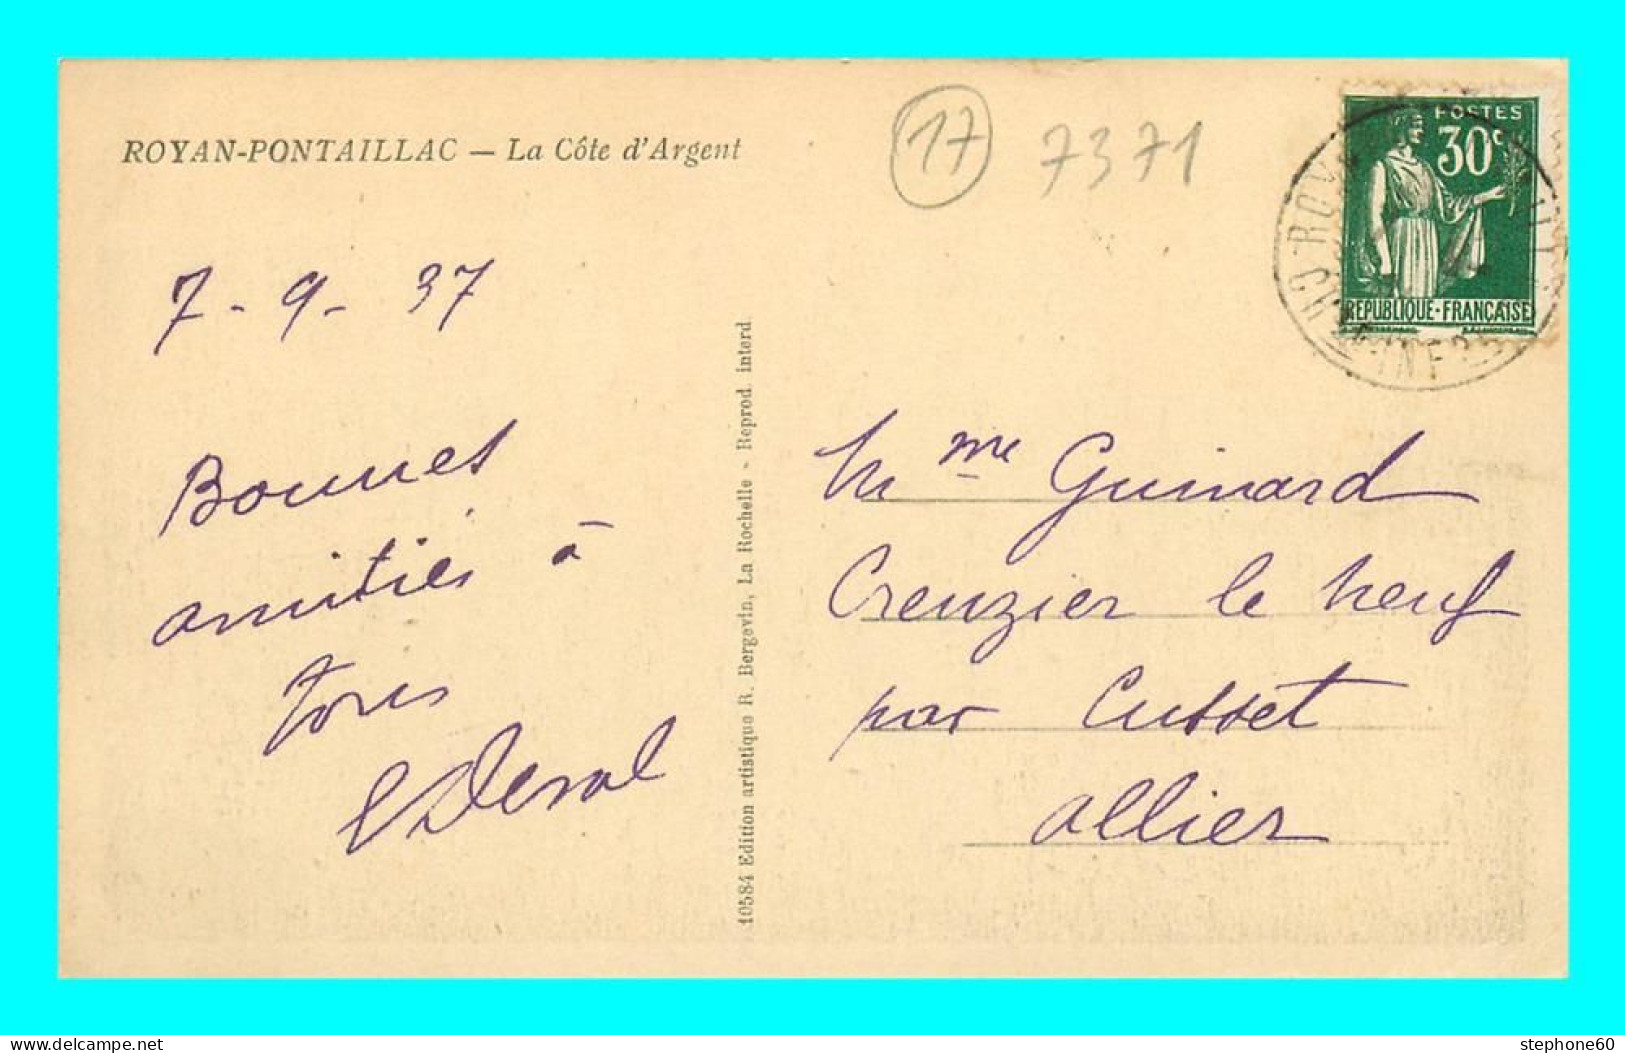 ROYAN-PONTAILLAC — La Côte d'Argent
17
7371
POSTES
30c
REPUBLIQUE-FRANÇAISE
7-9-37
Bonnes
amitiés à
tous
10584 Edition artistique R. Bergevin, La Rochelle - Reprod. interd.
Mme Guinard
Creuzier le neuf
par Cusset
Allier
delcampe.net
stephone60